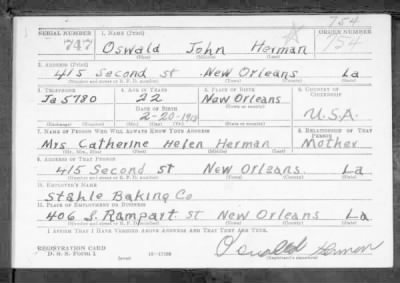 754
SERIAL NUMBER 1. NAME (Print) ORDER NUMBER
747 Oswald John Herman 754
(First) (Middle) (Last)
2. ADDRESS (Print)
415 Second st New Orleans La
(Number and street or R. F. D. number) (Town) (County) (State)
3. TELEPHONE 4. AGE IN YEARS 5. PLACE OF BIRTH 6. COUNTRY OF CITIZENSHIP
Ja 5780 22 New Orleans
DATE OF BIRTH (Town or county)
2-20-19 U.S.A.
(Exchange) (Number) (Mo.) (Day) (Yr.) (State or country)
7. NAME OF PERSON WHO WILL ALWAYS KNOW YOUR ADDRESS 8. RELATIONSHIP OF THAT PERSON
Mrs Catherine Helen Herman Mother
(Mr., Mrs., Miss) (First) (Middle) (Last)
9. ADDRESS OF THAT PERSON
415 Second st New Orleans La
(Number and street or R. F. D. number) (Town) (County) (State)
10. EMPLOYER'S NAME
Stahle Baking Co
11. PLACE OF EMPLOYMENT OR BUSINESS
406 S. Rampart st New Orleans La
(Number and street or R. F. D. number) (Town) (County) (State)
I AFFIRM THAT I HAVE VERIFIED ABOVE ANSWERS AND THAT THEY ARE TRUE.
REGISTRATION CARD
D. S. S. FORM 1 (over) 16-17105 Oswald Herman
(Registrant's signature)